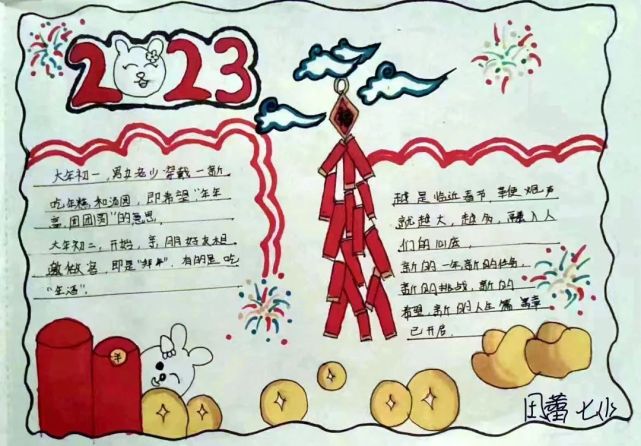 2023
大年初一,男女老少穿戴一新
吃年糕和汤圆,即希望"年年
高,团团圆"的意思,
大年初二,开始,亲朋好友相
邀做客,即是"拜年",有的是吃
"年酒".
越是临近春节,鞭炮声
就越大,越多,融入人
们的心底,
新的一年,新的任务,
新的挑战,新的
希望,新的人生篇章
已开启.
田蕾